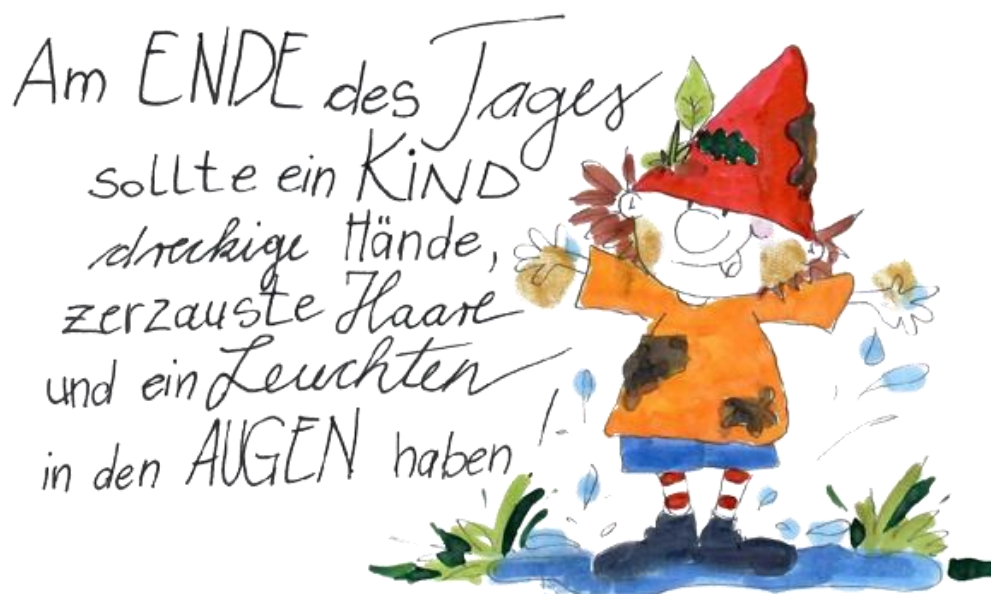 Am ENDE des Tages
sollte ein KiND
dreckige Hände,
zerzauste Haare
und ein Leuchten
in den AUGEN haben!